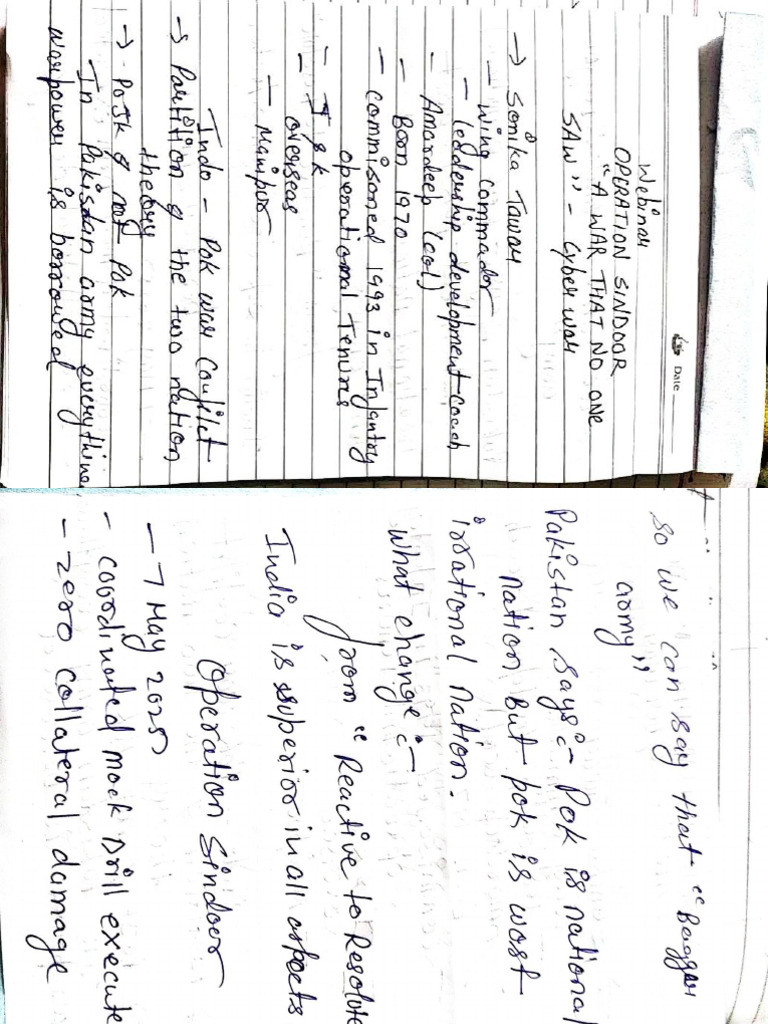 Date
Webinar
OPERATION SINDOOR
"A WAR THAT NO ONE
SAW" - Cyber war
→ Sonika Tawar
- Wing Commador
- leadership development coach
- Amardeep (col)
- Born 1970
- Commisoned 1993 in Infantry
operational Tenures
- J & K
- overseas
- Manipur
Indo - Pak war Conflict
→ Partition of the two nation
theory
→ POJK & not Pok
In Pakistan army everything
warpower is borrowed
So we can say that "Baggar
army"
Pakistan says:- Pok is national
nation but pok is worst
irrational nation.
What change :-
from "Reactive to Resolute
India is superior in all aspects
Operation Sindoor
- 7 May 2025
- coordinated mock drill execute
- zero collateral damage